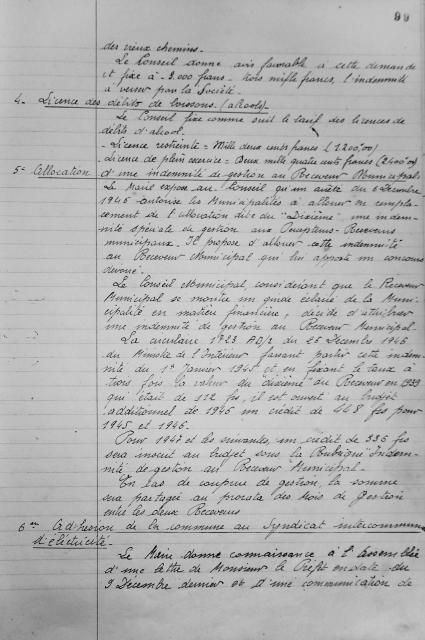 99
des vieux chemins.
Le Conseil donne avis favorable à cette demande
et fixe à 3.000 francs - trois mille francs, l'indemnité
à verser par la Société.
4- Licence des débits de boissons. (alcools).
Le Conseil fixe comme suit le tarif des licences de
débits d'alcool.
- Licence restreinte = Mille deux cents francs (1200,00)
- Licence de plein exercice = Deux mille quatre cents francs (2400,00)
5- Allocation d'une indemnité de gestion au Receveur Municipal.
Le Maire expose au Conseil qu'un arrêté du 6 Décembre
1946 autorise les Municipalités à allouer en rempla-
cement de l'allocation dite du "Dixième" une indem-
nité spéciale de gestion aux Percepteurs-Receveurs
municipaux. Il propose d'allouer cette indemnité
au Receveur Municipal qui lui apporte un concours
dévoué.
Le Conseil Municipal, considérant que le Receveur
Municipal se montre un guide éclairé de la Muni-
cipalité en matière financière, décide d'attribuer
une indemnité de gestion au Receveur Municipal.
La circulaire N° 23 AD/2 du 26 Décembre 1946
du Ministre de l'Intérieur faisant partir cette indem-
nité du 1er Janvier 1945 et en fixant le taux à
trois fois la valeur du dixième au Receveur en 1939
qui était de 112 frs, il est ouvert au budget
additionnel de 1946 un crédit de 448 frs pour
1945 et 1946.
Pour 1947 et les suivantes, un crédit de 336 frs
sera inscrit au budget sous la Rubrique "Indem-
nité de gestion au Receveur Municipal.
En cas de coupure de gestion, la somme
sera partagée au prorata des Mois de Gestion
entre les deux Receveurs
6- Adhésion de la commune au Syndicat intercommunal
d'électricité.
Le Maire donne connaissance à l'Assemblée
d'une lettre de Monsieur le Préfet en date du
9 Décembre dernier et d'une communication de